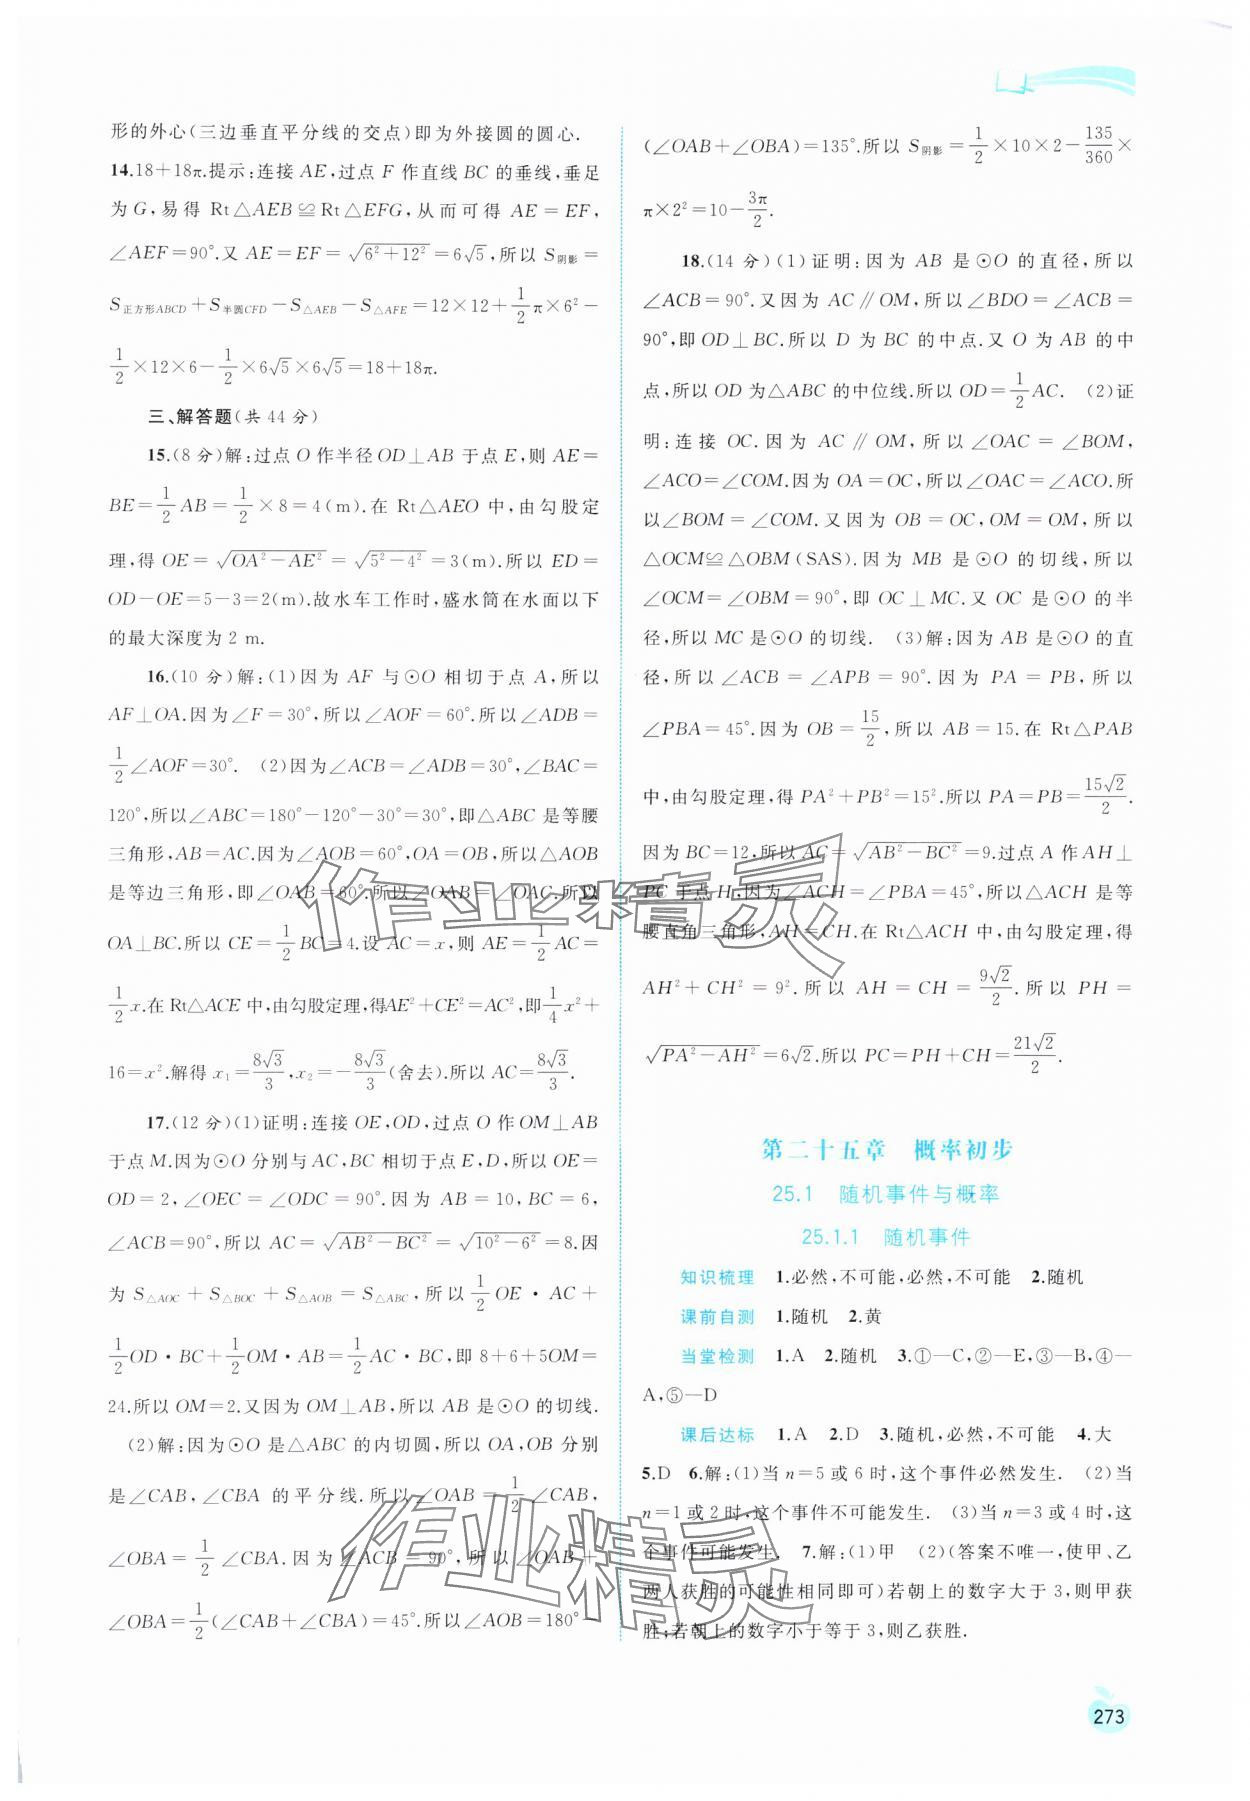 形的外心(三边垂直平分线的交点)即为外接圆的圆心.
14.18+18π.提示:连接 AE,过点 F 作直线 BC 的垂线,垂足
为 G,易得 Rt△AEB≌Rt△EFG,从而可得 AE=EF,
∠AEF=90°.又 AE=EF=√(6²+12²)=6√5,所以 S阴影=
S正方形ABCD+S半圆CFD−S△AEB−S△AFE=12×12+1/2π×6²−
1/2×12×6−1/2×6√5×6√5=18+18π.
三、解答题(共 44 分)
15.(8 分)解:过点 O 作半径 OD⊥AB 于点 E,则 AE=
BE=1/2AB=1/2×8=4(m).在 Rt△AEO 中,由勾股定
理,得 OE=√(OA²−AE²)=√(5²−4²)=3(m).所以 ED=
OD−OE=5−3=2(m).故水车工作时,盛水筒在水面以下
的最大深度为 2 m.
16.(10 分)解:(1)因为 AF 与⊙O 相切于点 A,所以
AF⊥OA.因为∠F=30°,所以∠AOF=60°.所以∠ADB=
1/2∠AOF=30°. (2)因为∠ACB=∠ADB=30°,∠BAC=
120°,所以∠ABC=180°−120°−30°=30°,即△ABC 是等腰
三角形,AB=AC.因为∠AOB=60°,OA=OB,所以△AOB
是等边三角形,即∠OAB=60°.所以∠OAB=∠OAC.所以
OA⊥BC.所以 CE=1/2BC=4.设 AC=x,则 AE=1/2AC=
1/2x.在 Rt△ACE 中,由勾股定理,得AE²+CE²=AC²,即1/4x²+
16=x².解得 x₁=8√3/3,x₂=−8√3/3(舍去).所以 AC=8√3/3.
17.(12 分)(1)证明:连接 OE,OD,过点 O 作 OM⊥AB
于点 M.因为⊙O 分别与 AC,BC 相切于点 E,D,所以 OE=
OD=2,∠OEC=∠ODC=90°.因为 AB=10,BC=6,
∠ACB=90°,所以 AC=√(AB²−BC²)=√(10²−6²)=8.因
为 S△AOC+S△BOC+S△AOB=S△ABC,所以 1/2OE·AC+
1/2OD·BC+1/2OM·AB=1/2AC·BC,即 8+6+5OM=
24.所以 OM=2.又因为 OM⊥AB,所以 AB 是⊙O 的切线.
(2)解:因为⊙O 是△ABC 的内切圆,所以 OA,OB 分别
是∠CAB,∠CBA 的平分线.所以∠OAB=1/2∠CAB,
∠OBA=1/2∠CBA.因为∠ACB=90°,所以∠OAB+
∠OBA=1/2(∠CAB+∠CBA)=45°.所以∠AOB=180°−
(∠OAB+∠OBA)=135°.所以 S阴影=1/2×10×2−135/360×
π×2²=10−3π/2.
18.(14 分)(1)证明:因为 AB 是⊙O 的直径,所以
∠ACB=90°.又因为 AC∥OM,所以∠BDO=∠ACB=
90°,即 OD⊥BC.所以 D 为 BC 的中点.又 O 为 AB 的中
点,所以 OD 为△ABC 的中位线.所以 OD=1/2AC. (2)证
明:连接 OC.因为 AC∥OM,所以∠OAC=∠BOM,
∠ACO=∠COM.因为 OA=OC,所以∠OAC=∠ACO.所
以∠BOM=∠COM.又因为 OB=OC,OM=OM,所以
△OCM≌△OBM(SAS).因为 MB 是⊙O 的切线,所以
∠OCM=∠OBM=90°,即 OC⊥MC.又 OC 是⊙O 的半
径,所以 MC 是⊙O 的切线. (3)解:因为 AB 是⊙O 的直
径,所以∠ACB=∠APB=90°.因为 PA=PB,所以
∠PBA=45°.因为 OB=15/2,所以 AB=15.在 Rt△PAB
中,由勾股定理,得 PA²+PB²=15².所以 PA=PB=15√2/2.
因为 BC=12,所以 AC=√(AB²−BC²)=9.过点 A 作 AH⊥
PC 于点 H,因为∠ACH=∠PBA=45°,所以△ACH 是等
腰直角三角形,AH=CH.在 Rt△ACH 中,由勾股定理,得
AH²+CH²=9².所以 AH=CH=9√2/2.所以 PH=
√(PA²−AH²)=6√2.所以 PC=PH+CH=21√2/2.
第二十五章 概率初步
25.1 随机事件与概率
25.1.1 随机事件
知识梳理 1.必然,不可能,必然,不可能 2.随机
课前自测 1.随机 2.黄
当堂检测 1.A 2.随机 3.①—C,②—E,③—B,④—
A,⑤—D
课后达标 1.A 2.D 3.随机,必然,不可能 4.大
5.D 6.解:(1)当 n=5 或 6 时,这个事件必然发生. (2)当
n=1 或 2 时,这个事件不可能发生. (3)当 n=3 或 4 时,这
个事件可能发生. 7.解:(1)甲 (2)(答案不唯一,使甲、乙
两人获胜的可能性相同即可)若朝上的数字大于 3,则甲获
胜;若朝上的数字小于等于 3,则乙获胜.
273
作业精灵
作业精灵